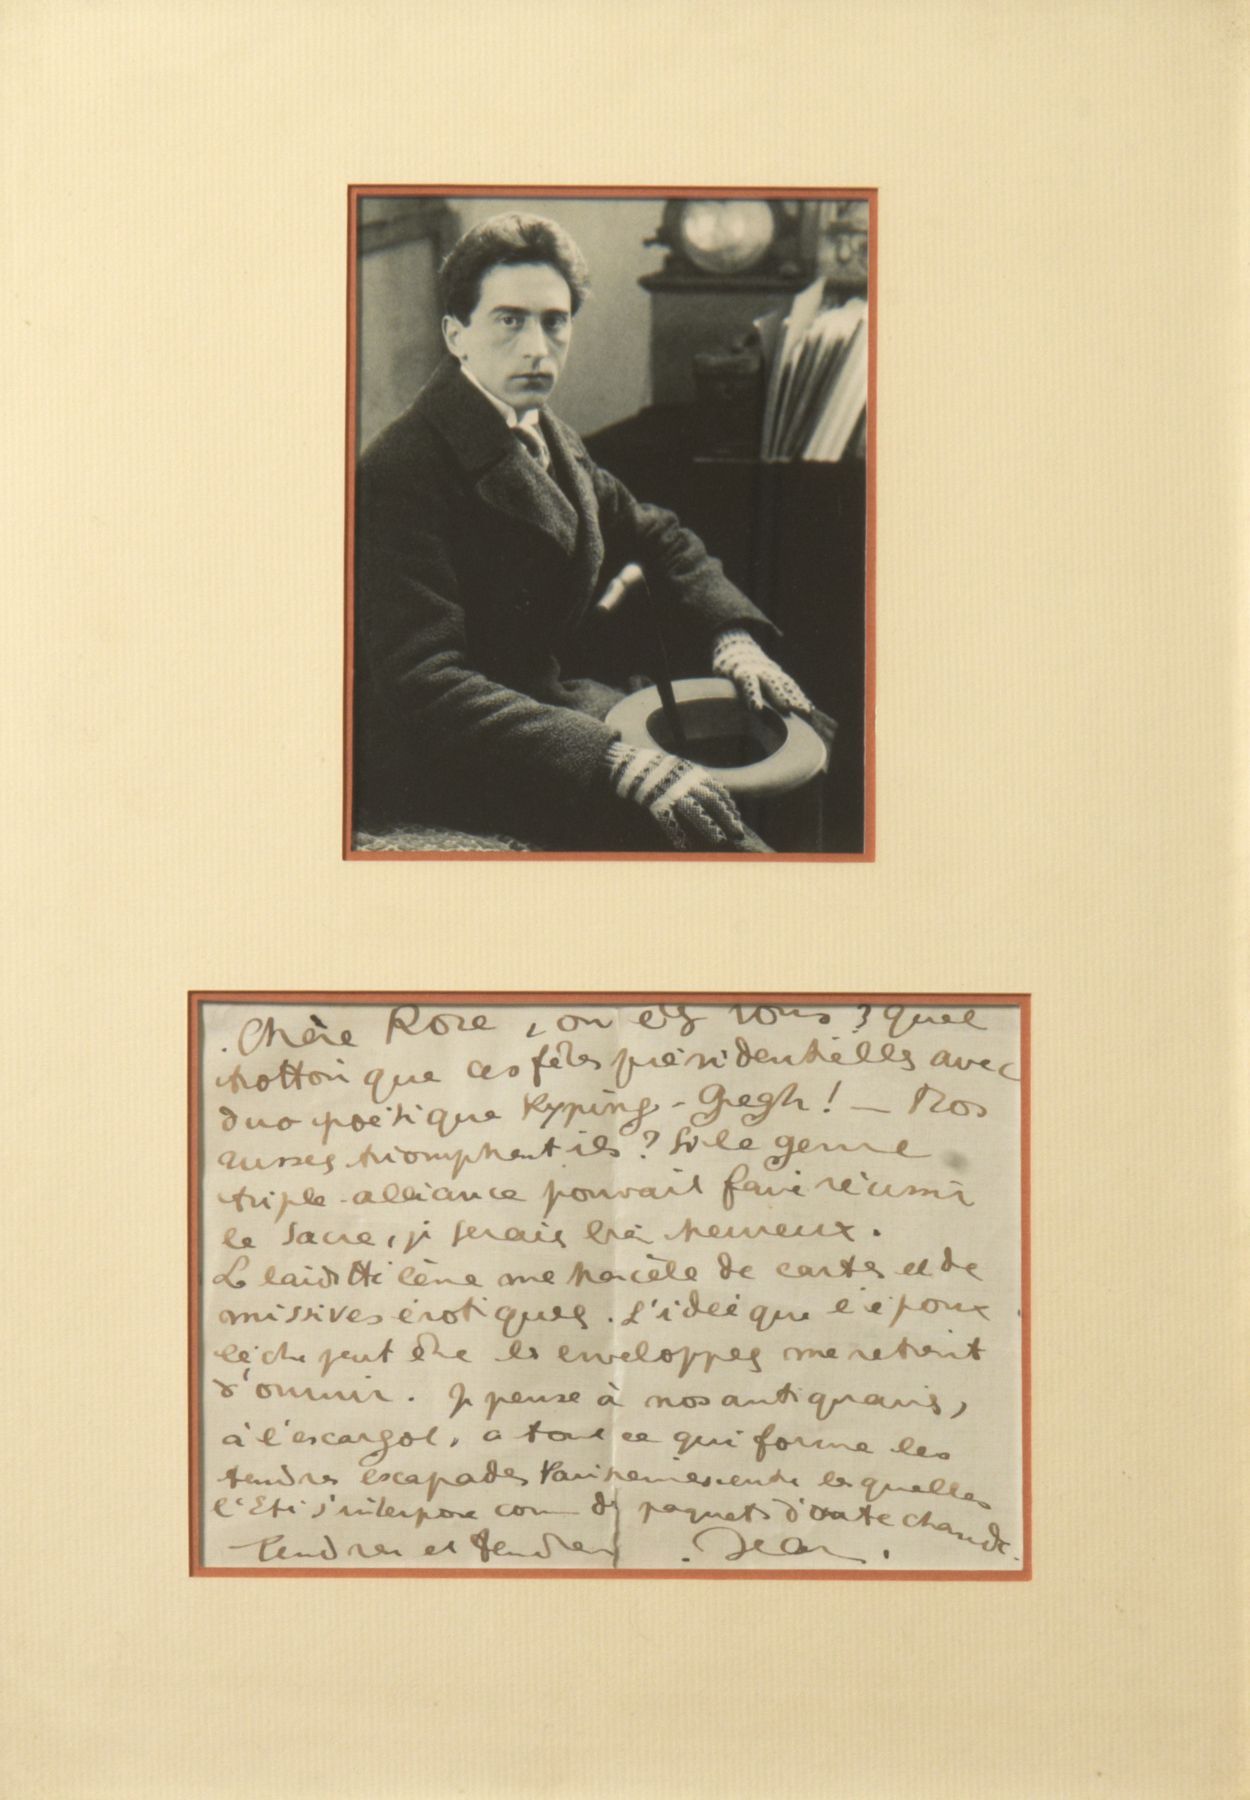 Chère Rose, où êtes vous ? quel
trottoir que ces fêtes présidentielles avec
duo poétique Kyping - Gregh ! — Nos
russes triomphent ils ? Si le genre
triple-alliance pouvait faire réussir
le Sacre, je serais très heureux.
Le laid me harcèle de cartes et de
missives érotiques. L'idée que l'époux
lèche peut être les enveloppes me retient
d'ouvrir. Je pense à nos antiquaires,
à l'escargot, a tout ce qui forme les
tendres escapades Parisiennes entre lesquelles
l'Eté s'interpose comme des paquets d'ouate chaude.
Tendres et tendres . Jean .